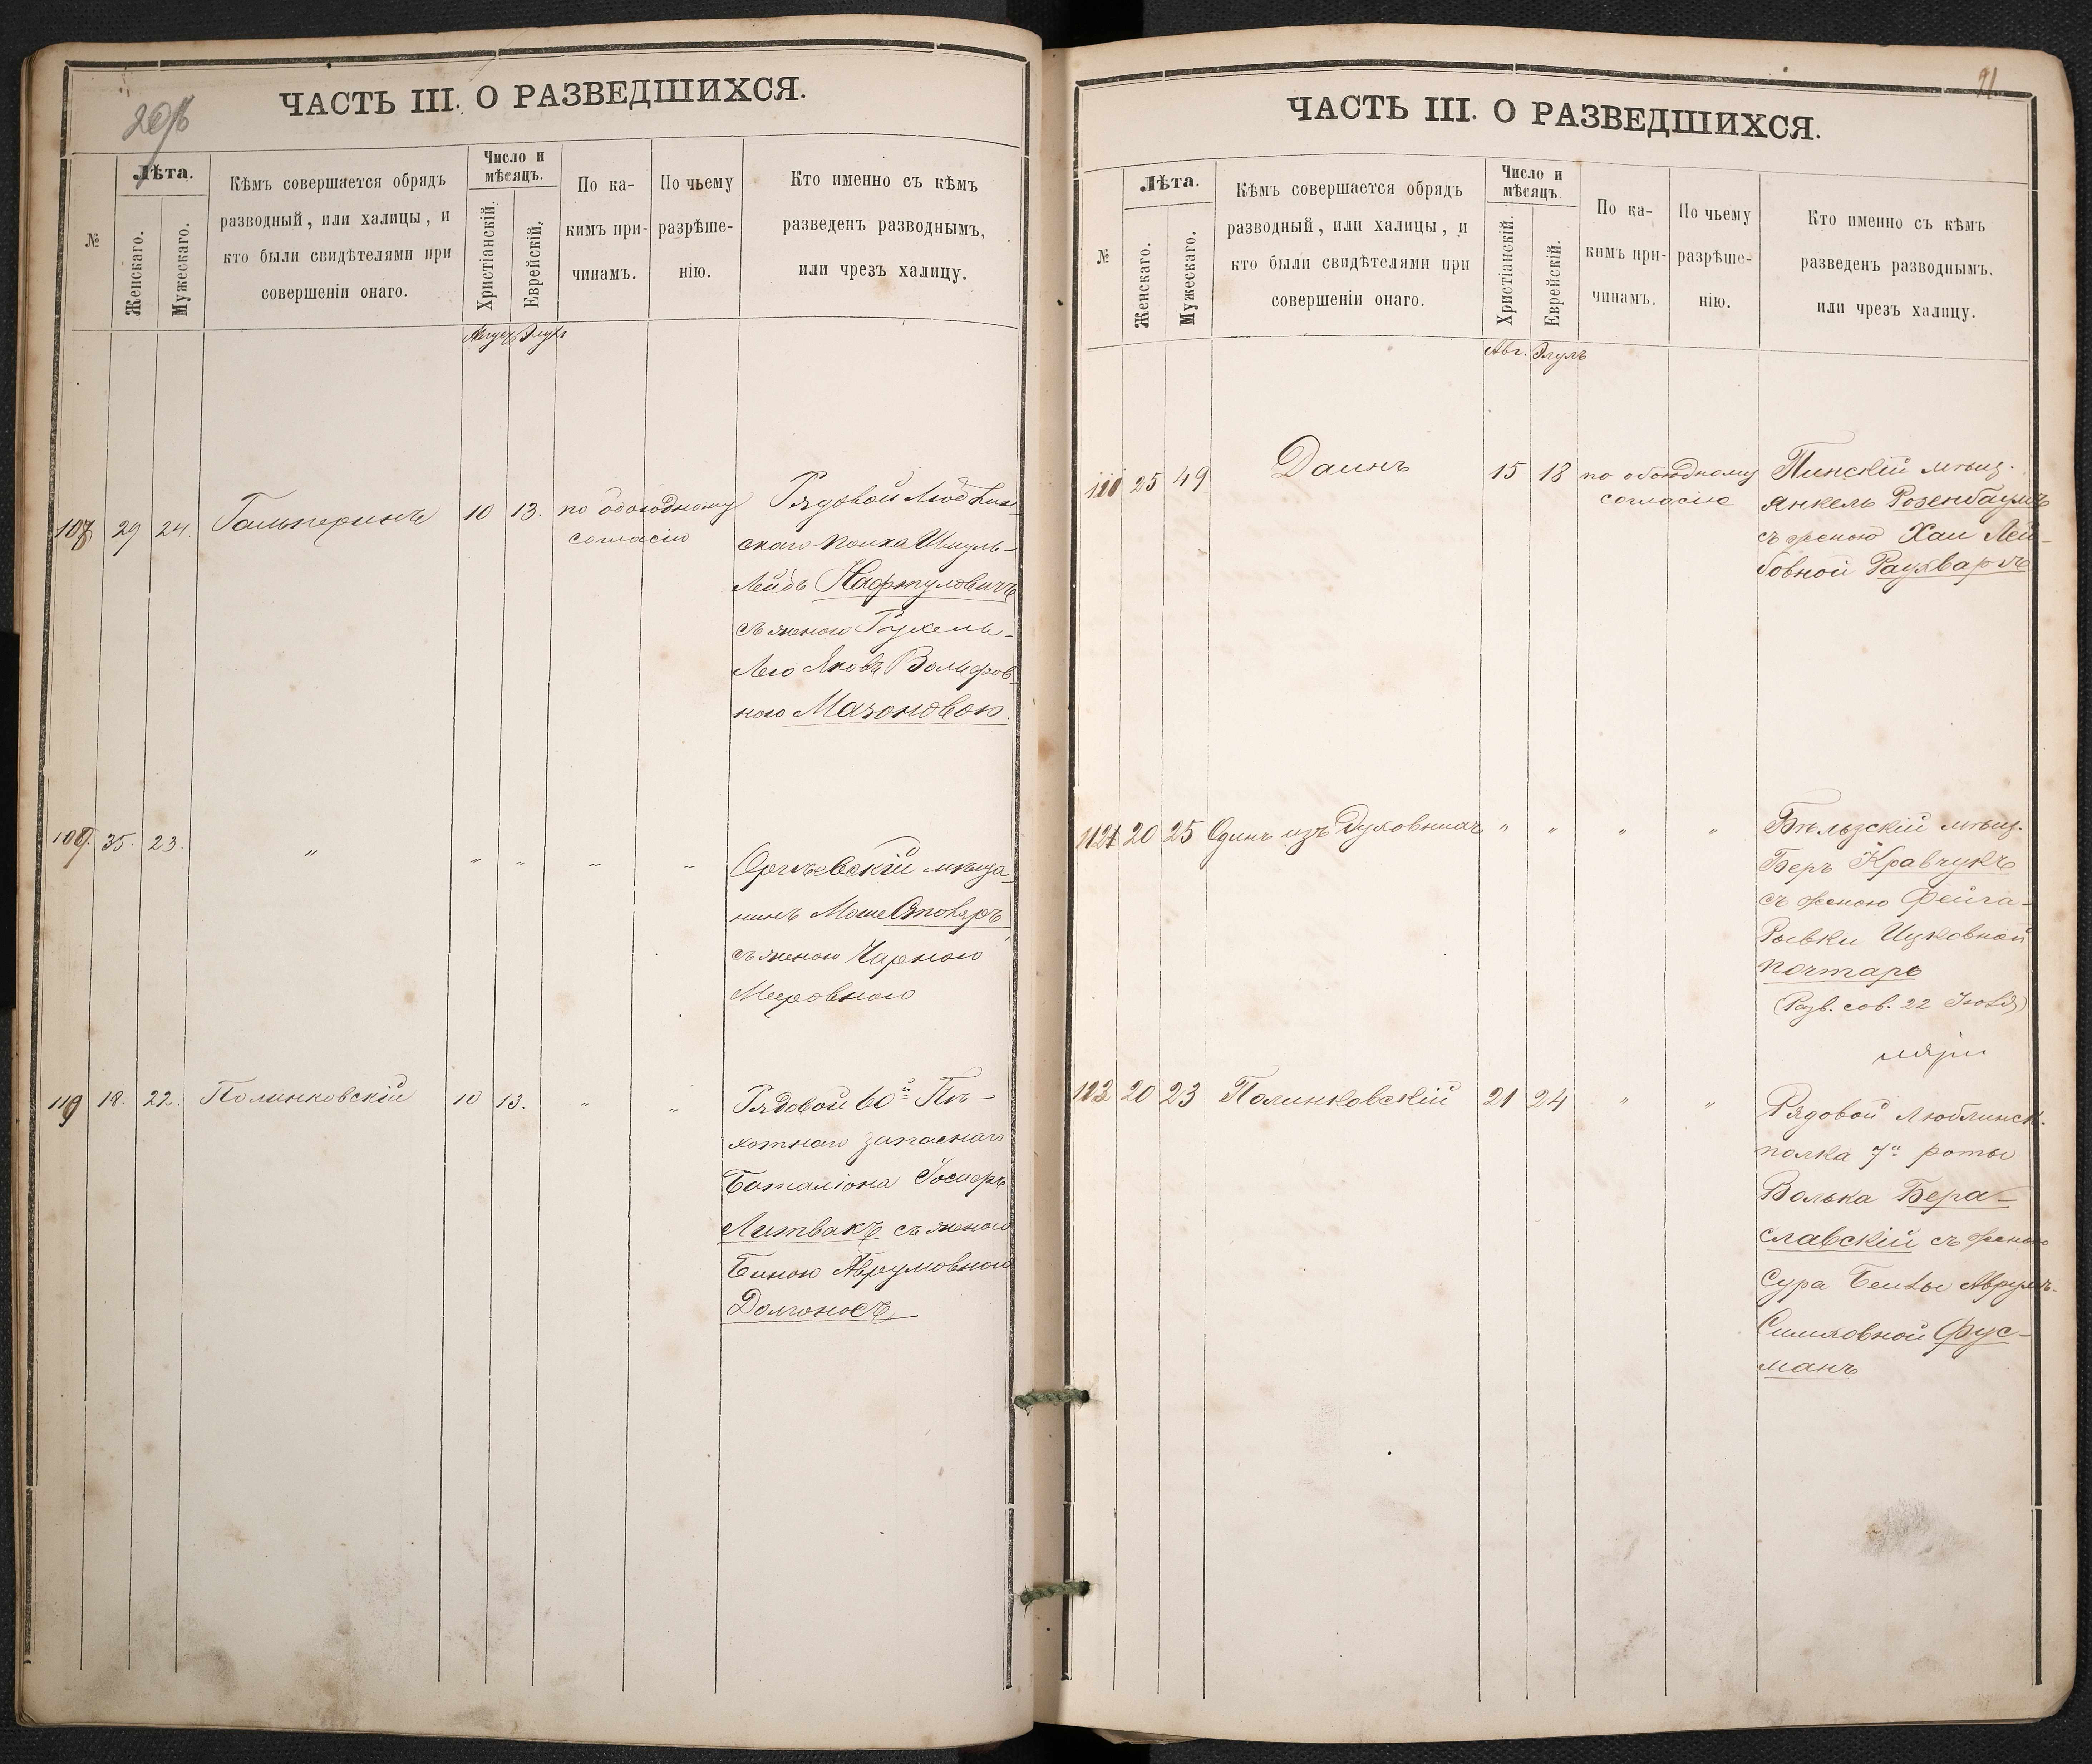 ЧАСТЬ III. О РАЗВЕДШИХСЯ.
№
Лѣта.
Женскаго.
Мужескаго.
Кѣмъ совершается обрядъ
разводный, или халицы, и
кто были свидѣтелями при
совершеніи онаго.
Число и
мѣсяцъ.
Христіанскій.
Еврейскій.
По ка-
кимъ при-
чинамъ.
По чьему
разрѣше-
нію.
Кто именно съ кѣмъ
разведенъ разводнымъ,
или чрезъ халицу.
Августъ Элулъ
29 24. Гальперинъ 10 13. по обоюдному
согласію
Рядовой Люблин-
скаго полка Шмуль-
Лейбъ Нафтуловичъ
съ женою Рухель-
Леею Вольфов-
ною Мазоновою.
109. 35. 23. " " " " "
Оргѣевскій мѣща-
нинъ Моше Столяръ
съ женою Чарною
Мееровною
18. 22. Полинковскій 10 13. " "
Рядовой 60й Пѣ-
хотнаго запаснаго
Баталіона Іосифъ
Литвакъ съ женою
Биною Аврумовною
Долгоносъ
ЧАСТЬ III. О РАЗВЕДШИХСЯ.
91.
№
Лѣта.
Женскаго.
Мужескаго.
Кѣмъ совершается обрядъ
разводный, или халицы, и
кто были свидѣтелями при
совершеніи онаго.
Число и
мѣсяцъ.
Христіанскій.
Еврейскій.
По ка-
кимъ при-
чинамъ.
По чьему
разрѣше-
нію.
Кто именно съ кѣмъ
разведенъ разводнымъ,
или чрезъ халицу.
Авг. Элулъ
25 49 Даинъ 15 18 по обоюдному
согласію
Пинскій мѣщ.
Янкель Розенбаумъ
съ женою Хаи Лей-
бовной Раухваръ
20 25 Одинъ изъ Духовныхъ " " " "
Бѣльзскій мѣщ.
Беръ Кравчукъ
съ женою Фейга-
Рывки Ицковной
Почтаръ
(Разв. сов. 22 Іюля)
20 23 Полинковскій 21 24 " "
Рядовой Люблинск.
полка 7й роты
Волька Бера-
славскій съ женою
Сура Бейлы Аврумъ-
Симховной Фус-
манъ